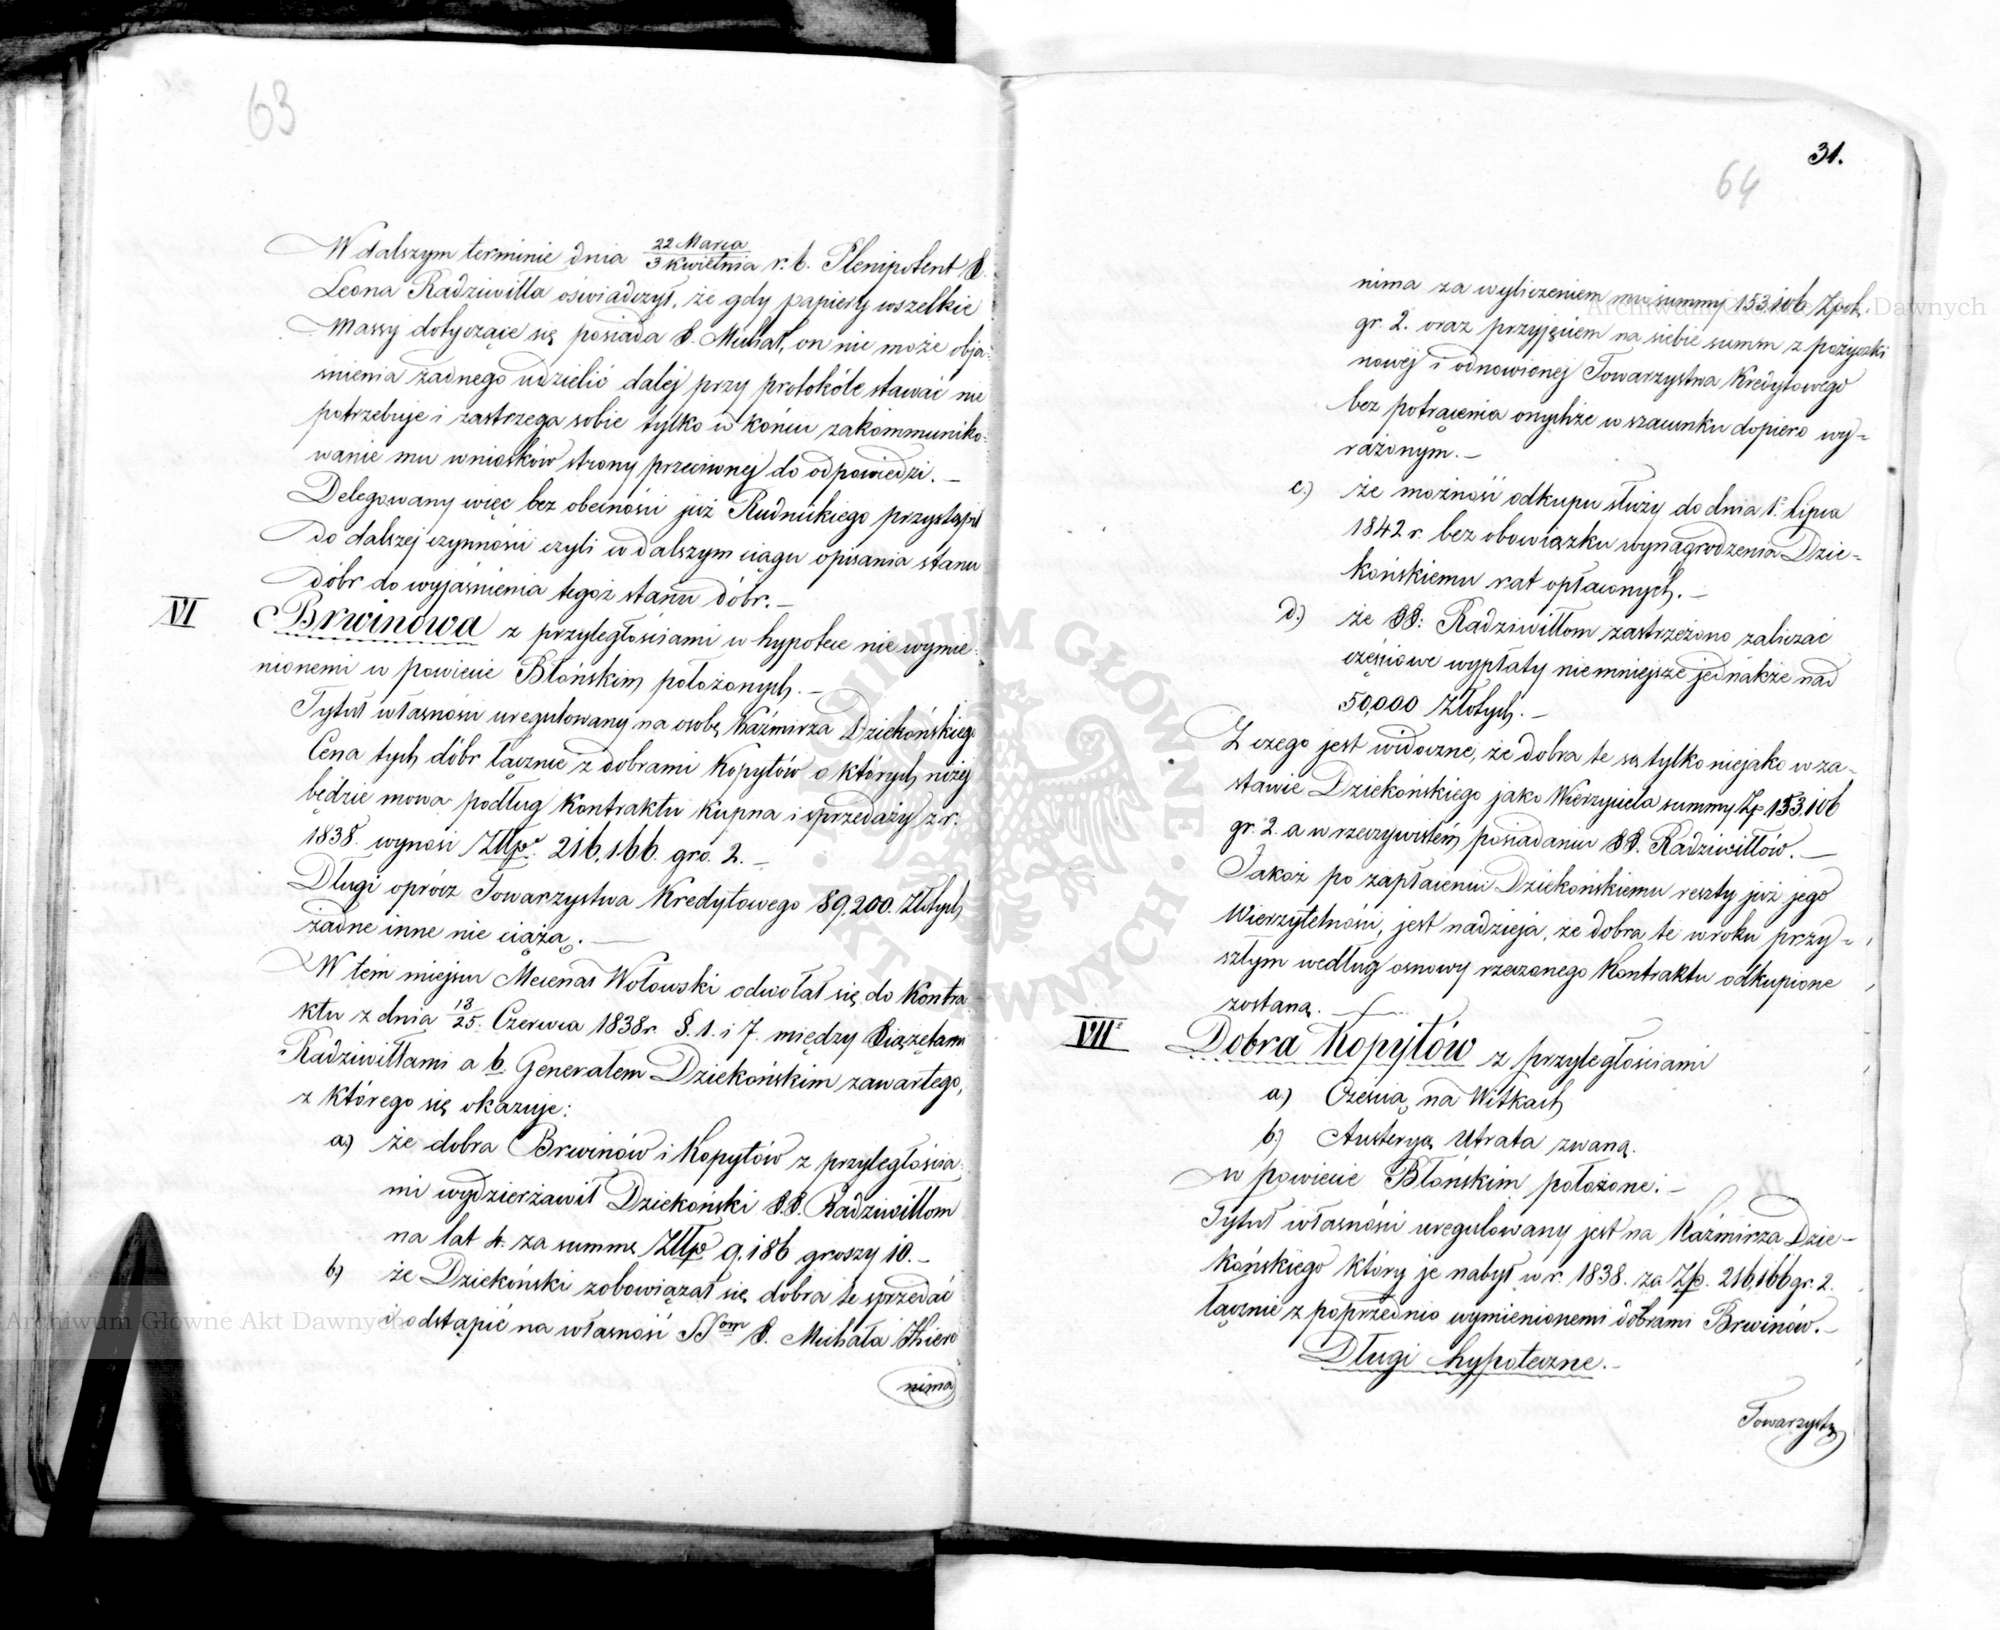 63
W dalszym terminie dnia 22 Marca / 3 Kwietnia r. b. Plenipotent X.
Leona Radziwiłła oświadczył, że gdy papiery wszelkie
Massy dotyczące się posiada X. Michał, on nie może obja-
śnienia żadnego udzielić dalej przy protokóle stawać nie
potrzebuje i zastrzega sobie tylko w końcu zakommuniko-
wanie mu wniosków strony przeciwnej do odpowiedzi. —
Delegowany więc bez obecności już Rudnickiego przystąpił
do dalszej czynności czyli w dalszym ciągu opisania stanu
dóbr do wyjaśnienia tegoż stanu dóbr. —
VI Brwinowa z przyległościami w hypotece nie wymie-
nionemi w powiecie Błońskim położonych. —
Tytuł własności uregulowany na osobę Kaźmirza Dziekońskiego
Cena tych dóbr łącznie z dobrami Kopytów o których niżej
będzie mowa podług Kontraktu Kupna i sprzedaży z r.
1838. wynosi Złłp. 216,166. gro. 2. —
Długi oprócz Towarzystwa Kredytowego 89,200. Złotych
żadne inne nie ciążą. —
W tém miejscu Mecenas Wołowski odwołał się do Kontra
ktu z dnia 13/25. Czerwca 1838 r. §. 1. i 7. między Xiążętami
Radziwiłłami a b. Generałem Dziekońskim zawartego,
z którego się okazuje:
a.) że dobra Brwinów i Kopytów z przyległościa-
mi wydzierżawił Dziekoński X.X. Radziwiłłom
na lat 4. za summę Złłp 9,186 groszy 10. —
b.) że Dziekoński zobowiązał się dobra te sprzedać
i odstąpić na własność SSom X. Michała Hiero
nima
31.
64
nima za wyliczeniem mu summy 153,106 Złot.
gr. 2. oraz przyjęciem na siebie summ z pożyczki
nowej i odnowionej Towarzystwa Kredytowego
bez potrącenia onychże w szacunku dopiero wy-
rażonym. —
c.) że możność odkupu służy do dnia 1. Lipca
1842 r. bez obowiązku wynagrodzenia Dzie-
końskiemu rat opłaconych. —
d.) że XX: Radziwiłłom zastrzeżono zaliczać
częściowe wypłaty niemniejsze jednakże nad
50,000 Złotych. —
Z czego jest widoczne, że dobra te są tylko niejako w za-
stawie Dziekońskiego jako Wierzyciela summy Zp. 153,106
gr. 2. a w rzeczywistém posiadaniu XX. Radziwiłłów. —
Jakoż po zapłaceniu Dziekońskiemu reszty już jego
Wierzytelności, jest nadzieja, że dobra te w roku przy-
szłym według osnowy rzeczonego Kontraktu odkupione
zostaną. —
VII Dobra Kopytów z przyległościami
a.) Częścią na Witkach
b.) Austeryą Utrata zwaną.
w powiecie Błońskim położone. —
Tytuł własności uregulowany jest na Kaźmirza Dzie-
końskiego który je nabył w r. 1838. za Zp. 216,166 gr. 2.
łącznie z poprzednio wymienionemi dobrami Brwinów. —
Długi hypoteczne. —
Towarzystw
ARCHIWUM GŁÓWNE AKT DAWNYCH
Archiwum Główne Akt Dawnych
Archiwum Główne Akt Dawnych
Archiwum Główne Akt Dawnych